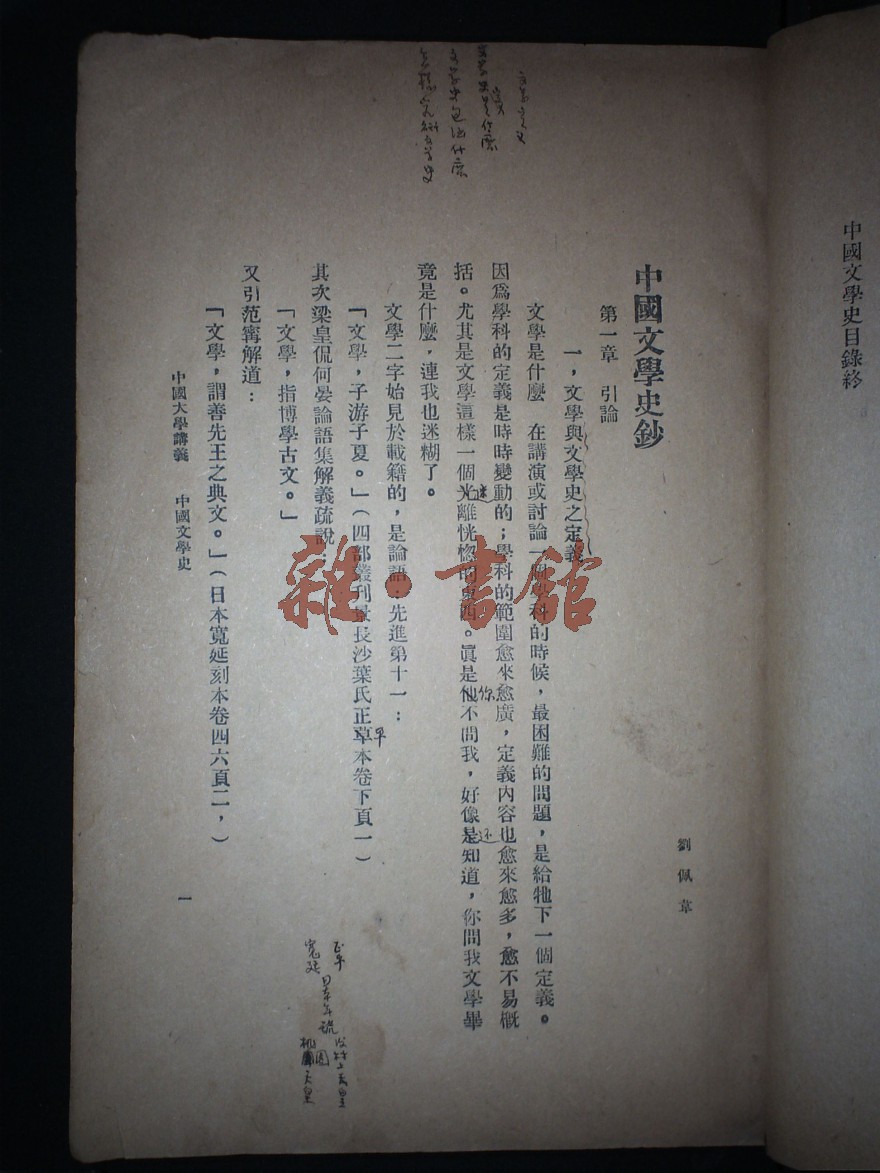 中國文學史目錄終
中國文學史鈔
劉佩韋
第一章　引論
一，文學與文學史之定義
文學是什麼　在講演或討論一個學科的時候，最困難的問題，是給牠下一個定義。
因爲學科的定義是時時變動的；學科的範圍愈來愈廣，定義內容也愈來愈多，愈不易概
括。尤其是文學這樣一個光離恍惚的東西。眞是他不問我，好像是知道，你問我文學畢
竟是什麼，連我也迷糊了。
文學二字始見於載籍的，是論語．先進第十一：
「文學，子游子夏。」（四部叢刊景長沙葉氏正草本卷下頁一）
其次梁皇侃何晏論語集解義疏說：
「文學，指博學古文。」
又引范甯解道：
「文學，謂善先王之典文。」（日本寬延刻本卷四六頁二，）
中國大學講義　中國文學史
一
文學定義
文學史是什麼
文學史包括什麼
迷
你
还
平
正平
寬延
日本年號
雜·書館